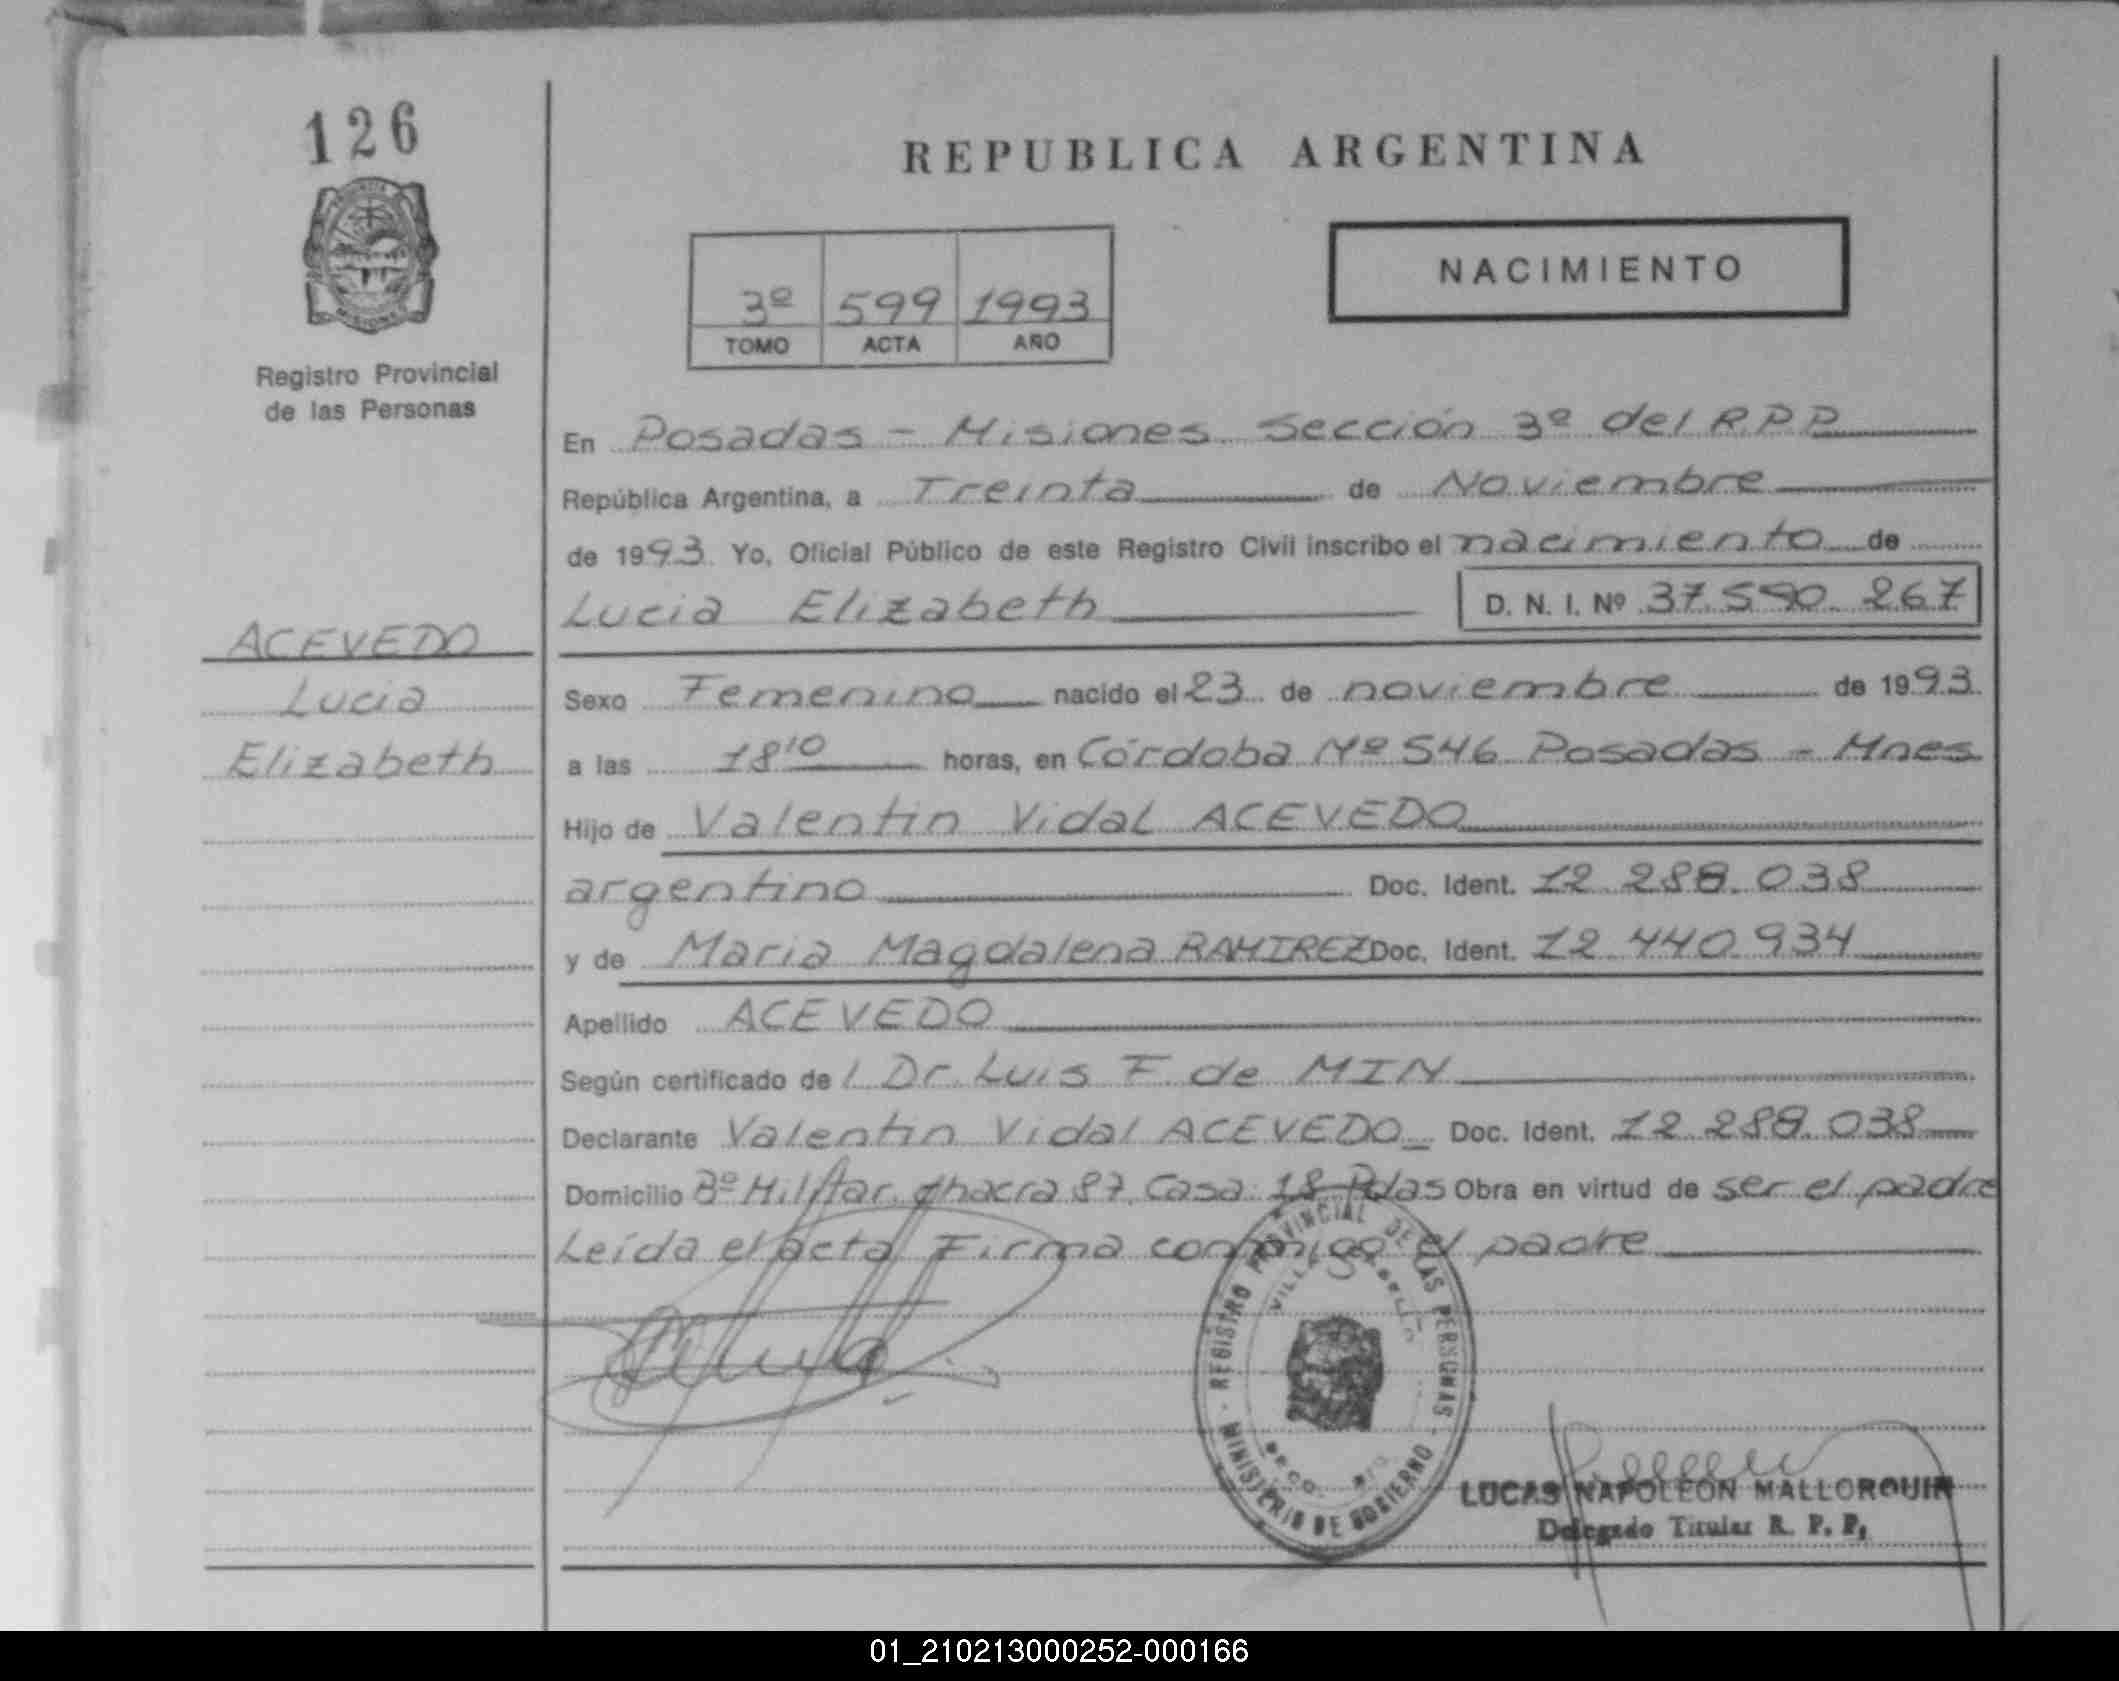 126
REPUBLICA ARGENTINA
NACIMIENTO
3º 599 1993
TOMO ACTA AÑO
Registro Provincial
de las Personas
En Posadas - Misiones Sección 3º del R.P.P.
República Argentina, a Treinta de Noviembre
de 1993. Yo, Oficial Público de este Registro Civil inscribo el nacimiento de
Lucia Elizabeth D. N. I. Nº 37.590.267
ACEVEDO
Lucia
Elizabeth
Sexo Femenino nacido el 23 de noviembre de 1993
a las 18¹⁰ horas, en Córdoba Nº 546 Posadas - Mnes
Hijo de Valentin Vidal ACEVEDO
argentino Doc. Ident. 12.288.038
y de Maria Magdalena RAMIREZ Doc. Ident. 12.440.934
Apellido ACEVEDO
Según certificado de l Dr. Luis F. de MIN
Declarante Valentin Vidal ACEVEDO Doc. Ident. 12.288.038
Domicilio Bº Militar chacra 87 Casa 18 Pdas Obra en virtud de ser el padre
Leída el acta Firma conmigo el padre
REGISTRO PROVINCIAL DE LAS PERSONAS
MINISTERIO DE GOBIERNO
LUCAS NAPOLEON MALLORQUIN
Delegado Titular R. P. P.
01_210213000252-000166